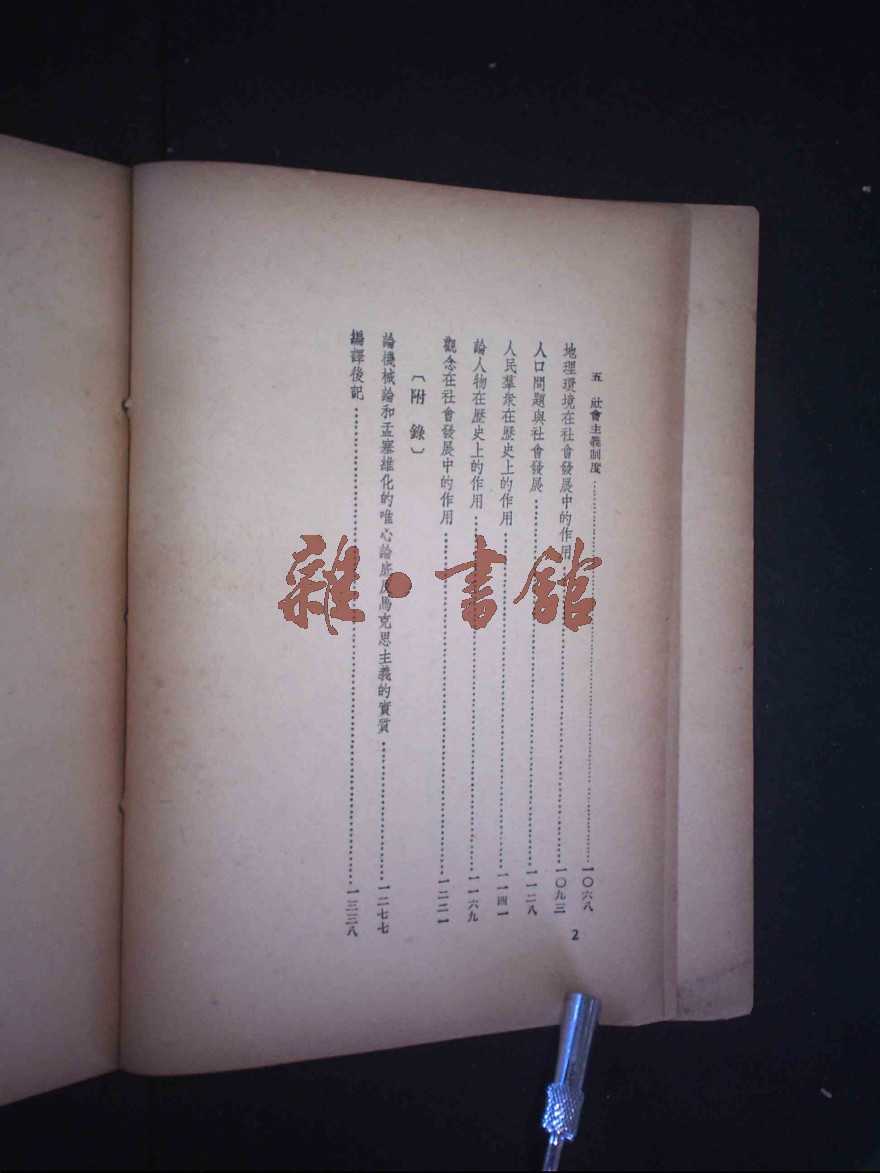 五 社會主義制度……一〇六八
地理環境在社會發展中的作用……一〇九三
人口問題與社會發展……一一二八
人民羣衆在歷史上的作用……一一四一
論人物在歷史上的作用……一一六九
觀念在社會發展中的作用……一二二一
〔附 錄〕
論機械論和孟塞維化的唯心論底反馬克思主義的實質……一二七七
編譯後記……一三三八
2
雜·書館